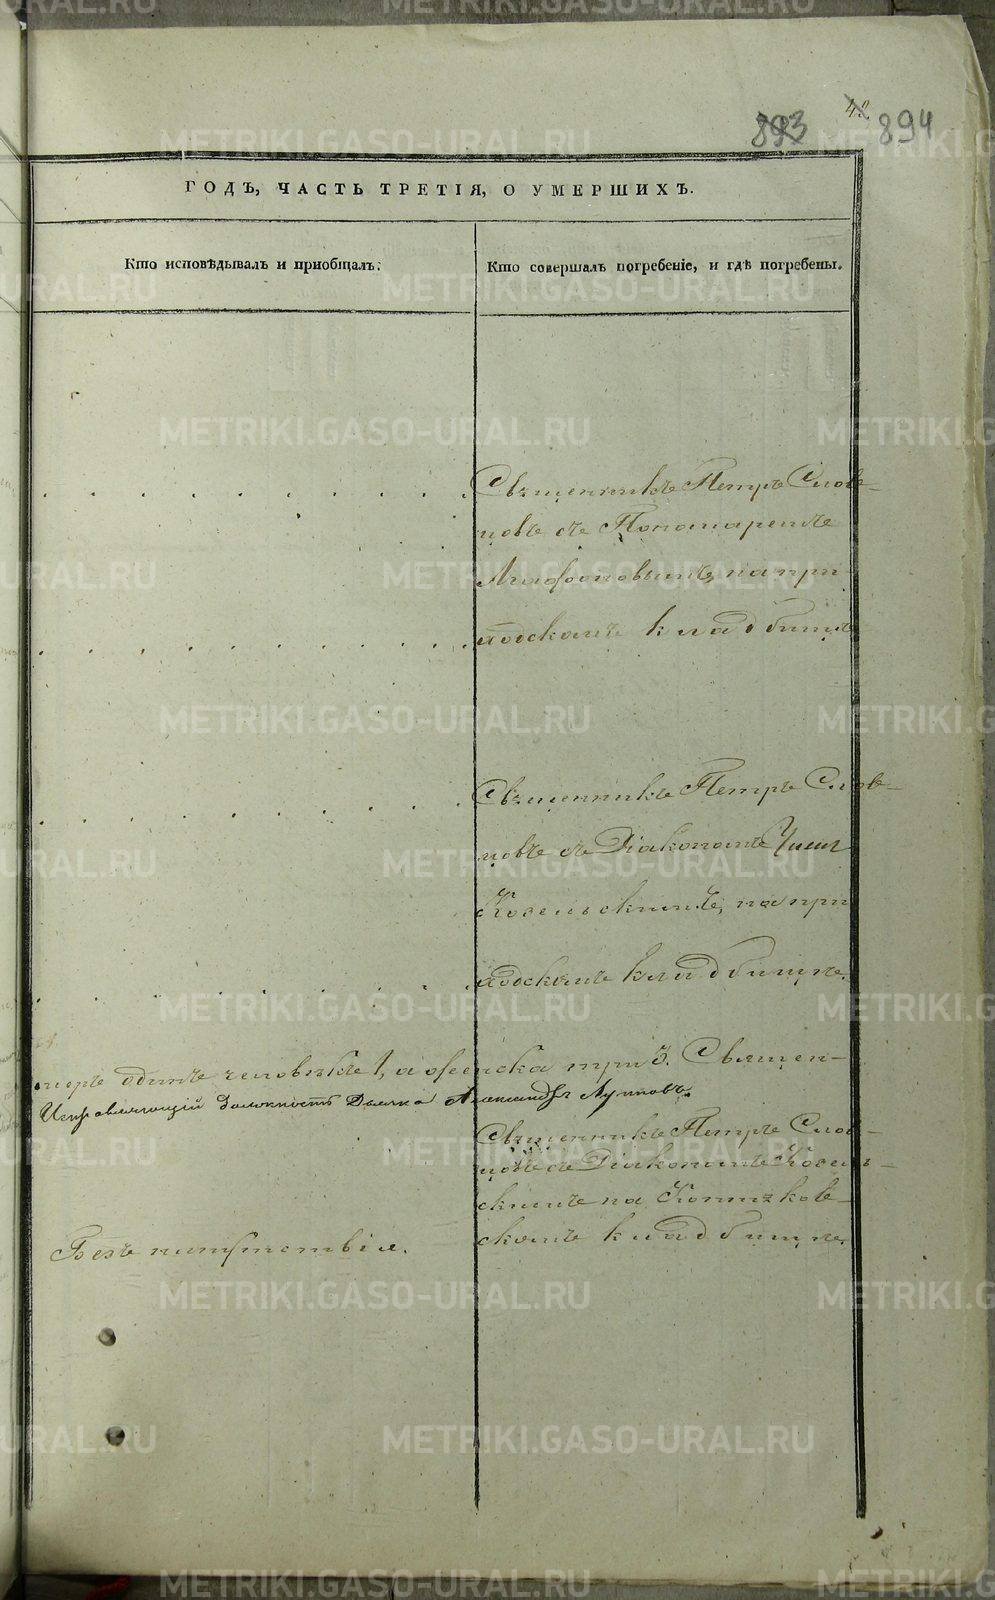 42
893 894
ГОДЪ, ЧАСТЬ ТРЕТІЯ, О УМЕРШИХЪ.
Кто исповѣдывалъ и приобщалъ.
Кто совершалъ погребеніе, и гдѣ погребены.
Священникъ Петръ Слов-
цовъ съ Пономаремъ
на при
ходскомъ кладбищѣ
Священникъ Петръ Слов-
цовъ съ Діакономъ
Козельскимъ, на при
ходскомъ кладбищѣ.
одинъ человѣкъ 1, а женска три 3. Священ-
Исправляющій должность Дьячка Александръ Лупповъ.
Священникъ Петръ Слов-
цовъ съ Діакономъ Козель-
скимъ на
скомъ кладбищѣ.
Безъ напутствія.
METRIKI.GASO-URAL.RU